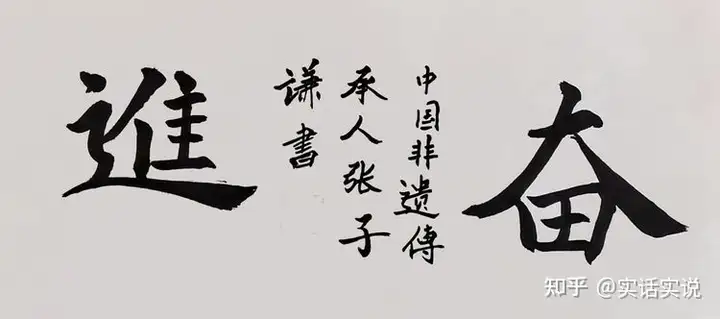 奋
中国非遺傳
承人张子
谦書
進
知乎 @实话实说